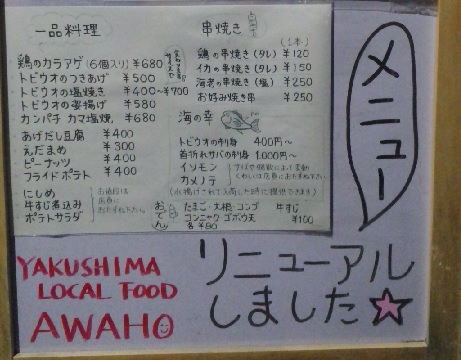 一品料理
鶏のカラアゲ(6個入り) ¥680
トビウオのつきあげ ¥500
トビウオの塩焼き ¥400~¥700
トビウオの姿揚げ ¥580
カンパチ カマ塩焼 ¥680
あげだし豆腐 ¥400
えだまめ ¥300
ピーナッツ ¥400
フライドポテト ¥400
にしめ
牛すじ煮込み
ポテトサラダ
お値段は
店員に
おたずね下さい。
串焼き
(1本)
鶏の串焼き(タレ) ¥120
イカの串焼き(タレ) ¥150
海老の串焼き(塩) ¥250
お好み焼き串 ¥250
海の幸
トビウオの刺身 400円~
首折れサバの刺身 1,000円~
イソモン
カメノテ
(水揚げされて入荷した時に提供できます)
おでん
たまご・大根・コンブ
コンニャク ゴボウ天
各 ¥80
牛すじ
¥100
メニュー
リニューアル
しました☆
YAKUSHIMA
LOCAL FOOD
AWAHO